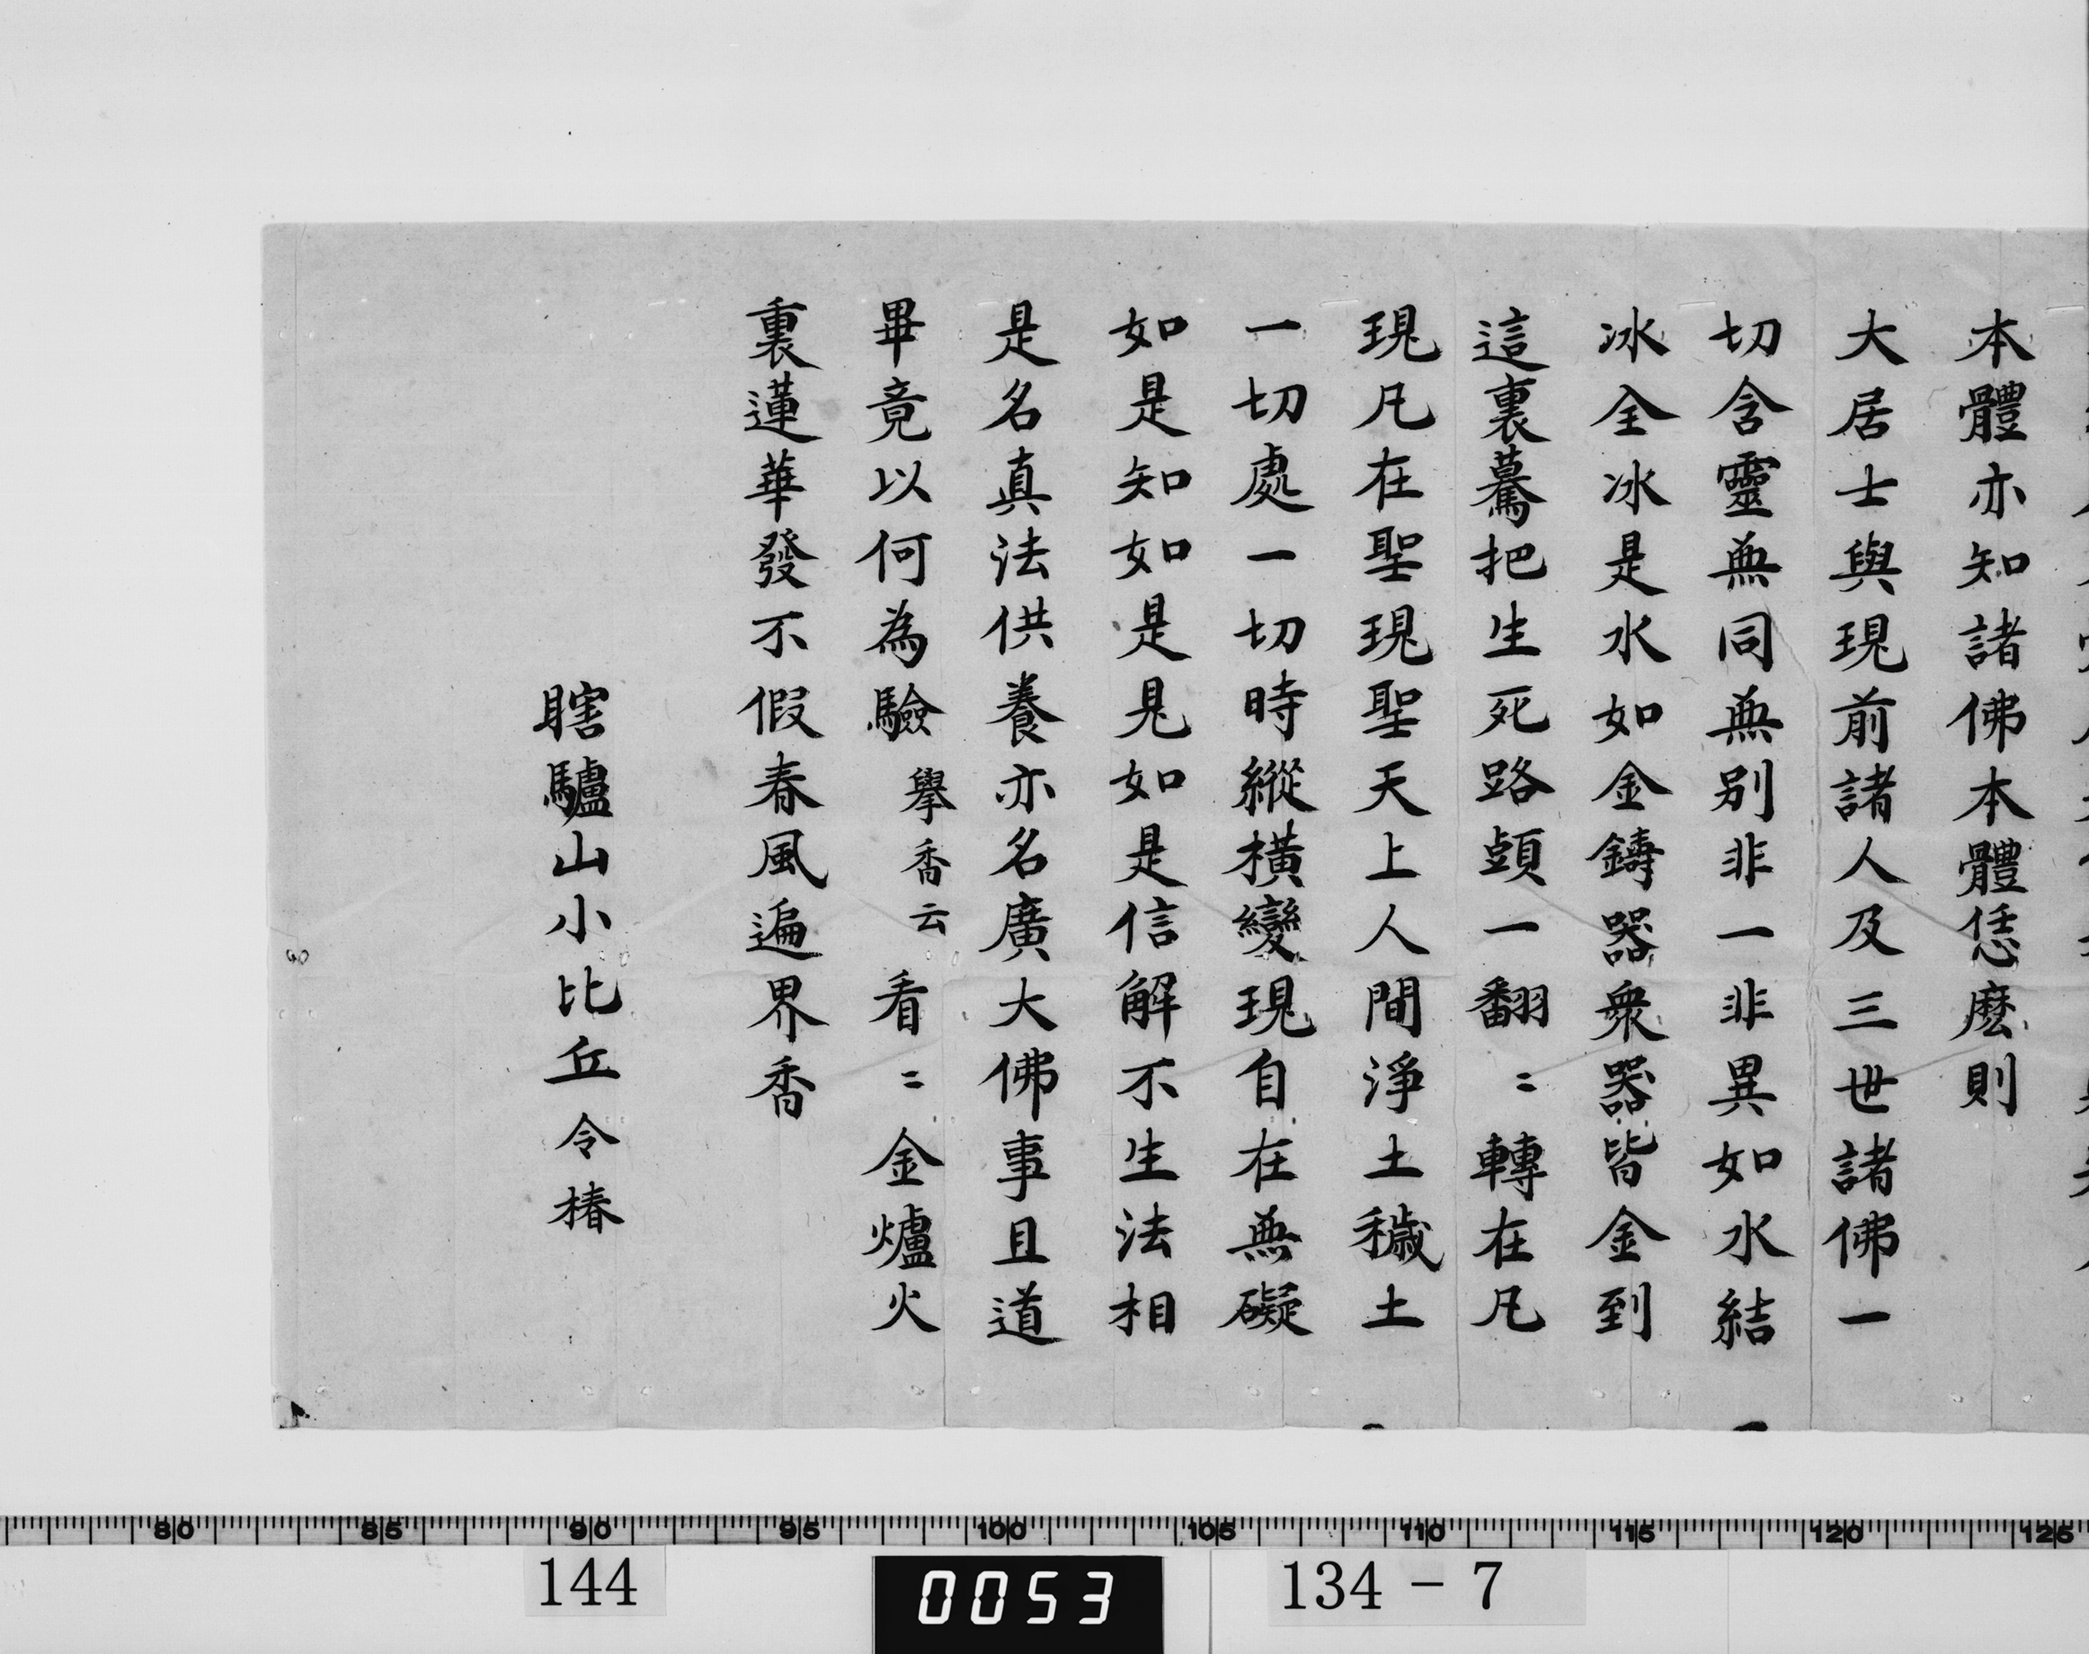 本體亦知諸佛本體恁麽則
大居士與現前諸人及三世諸佛一
切含靈無同無別非一非異如水結
冰全冰是水如金鑄器衆器皆金到
這裏驀把生死路頭一翻〻轉在凡
現凡在聖現聖天上人間淨土穢土
一切處一切時縱橫變現自在無礙
如是知如是見如是信解不生法相
是名真法供養亦名廣大佛事且道
畢竟以何為驗 擧香云 看〻金爐火
裏蓮華發不假春風遍界香
瞎驢山小比丘令椿
80 85 90 95 100 105 110 115 120 125
144
0053
134-7